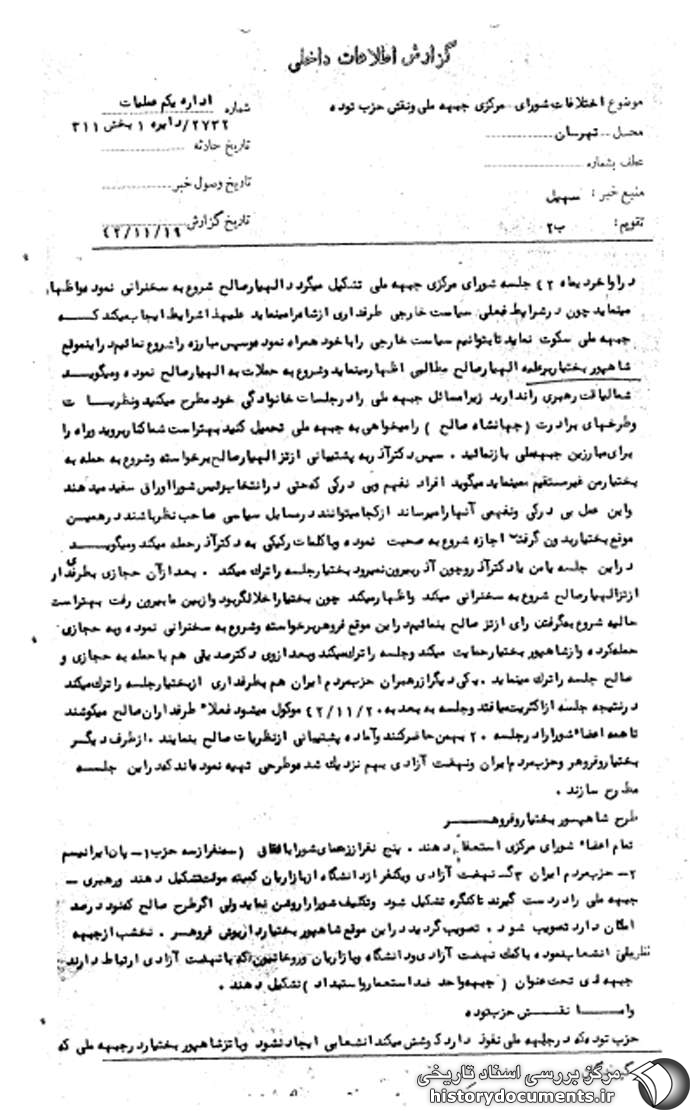 گزارش اطلاعات داخلی
موضوع اختلافات شورای مرکزی جبهه ملی ونقش حزب توده
محل تهران
عطف بشماره
منبع خبر: سهیل
تقویم: ب۲
شماره اداره یکم عملیات
۲۷۳۲/دایره ۱ بخش ۳۱۱
تاریخ حادثه
تاریخ وصول خبر
تاریخ گزارش ۴۲/۱۱/۱۹
در اواخر دیماه ۴۲ جلسه شورای مرکزی جبهه ملی تشکیل میگردد الهیار صالح شروع به سخنرانی نموده واظهار
مینماید چون در شرایط فعلی سیاست خارجی طرفداری از شاه را مینماید علیهذا شرایط ایجاب میکند که
جبهه ملی سکوت نماید تا بتوانیم سیاست خارجی را با خود همراه نموده وسپس مبارزه را شروع نمائیم در این موقع
شاهپور بختیار برعلیه الهیار صالح مطالبی اظهار مینماید وشروع به حملات به الهیار صالح نموده ومیگوید
شما لیاقت رهبری را ندارید زیرا مسائل جبهه ملی را در جلسات خانوادگی خود مطرح میکنید ونظریات
وطرحهای برادرت (جهانشاه صالح) را میخواهی به جبهه ملی تحمیل کنید بهتر است شما کنار بروید وراه را
برای مبارزین جبهه ملی باز نمائید . سپس دکتر آذر به پشتیبانی از تز الهیار صالح برخواسته وشروع به حمله به
بختیار من غیر مستقیم مینماید میگوید افراد نفهم وبی درکی که حتی در انتخاب رئیس شورا اوراق سفید میدهند
واین عمل بی درکی ونفهمی آنها را میرساند از کجا میتوانند در مسایل سیاسی صاحب نظر باشند در همین
موقع بختیار بدون گرفتن اجازه شروع به صحبت نموده وبا کلمات رکیکی به دکتر آذر حمله میکند ومیگوید
در این جلسه یا من یا دکتر آذر وچون آذر بیرون نمیرود بختیار جلسه را ترک میکند . بعد از آن حجازی بطرفداری
از تز الهیار صالح شروع به سخنرانی میکند واظهار میکند چون بختیار اخلالگر بود واز بین ما بیرون رفت بهتر است
حالیه شروع بگرفتن رای از تز صالح بنمائیم در این موقع فروهر برخواسته وشروع به سخنرانی نموده وبه حجازی
حمله کرده واز شاهپور بختیار حمایت میکند وجلسه را ترک میکند وبعد از وی دکتر صدیقی هم با حمله به حجازی و
صالح جلسه را ترک مینماید . یکی دیگر از رهبران حزب مردم ایران هم بطرفداری از بختیار جلسه را ترک میکند
در نتیجه جلسه از اکثریت میافتد وجلسه به بعد به ۴۲/۱۱/۲۰ موکول میشود فعلاً طرفداران صالح میکوشند
تا همه اعضاء شورا را در جلسه ۲۰ بهمن حاضر کنند وآماده پشتیبانی از نظریات صالح بنمایند . از طرف دیگر
بختیار وفروهر وحزب مردم ایران ونهضت آزادی بهم نزدیک شده وطرحی تهیه نموده اند که در این جلسه
مطرح سازند .
طرح شاهپور بختیار وفروهر
تمام اعضاء شورای مرکزی استعفا دهند . پنج نفر از زعمای شورا (سه نفر از سه حزب ۱- پان ایرانیسم
۲- حزب مردم ایران ۳- نهضت آزادی ویکنفر از دانشگاه از بازاریان کمیته موقت تشکیل دهند ورهبری
جبهه ملی را در دست گیرند تا کنگره تشکیل شود وتکلیف شورا را روشن نماید ولی اگر طرح صالح که نود درصد
امکان دارد تصویب شود . تصویب گردید در این موقع شاهپور بختیار داریوش فروهر . نخشب از جبهه
ملی انشعاب نموده با کمک نهضت آزادی ودانشگاه وبازاریان وروحانیون که با نهضت آزادی ارتباط دارند
جبهه ای تحت عنوان (جبهه واحد ضد استعمار واستبداد) تشکیل دهند .
واما نقش حزب توده
حزب توده که در جبهه ملی نفوذ دارد کوشش میکند انشعابی ایجاد نشود وبا تز شاهپور بختیار در جبهه ملی که
مرکز بررسی اسناد تاریخی
historydocuments.ir